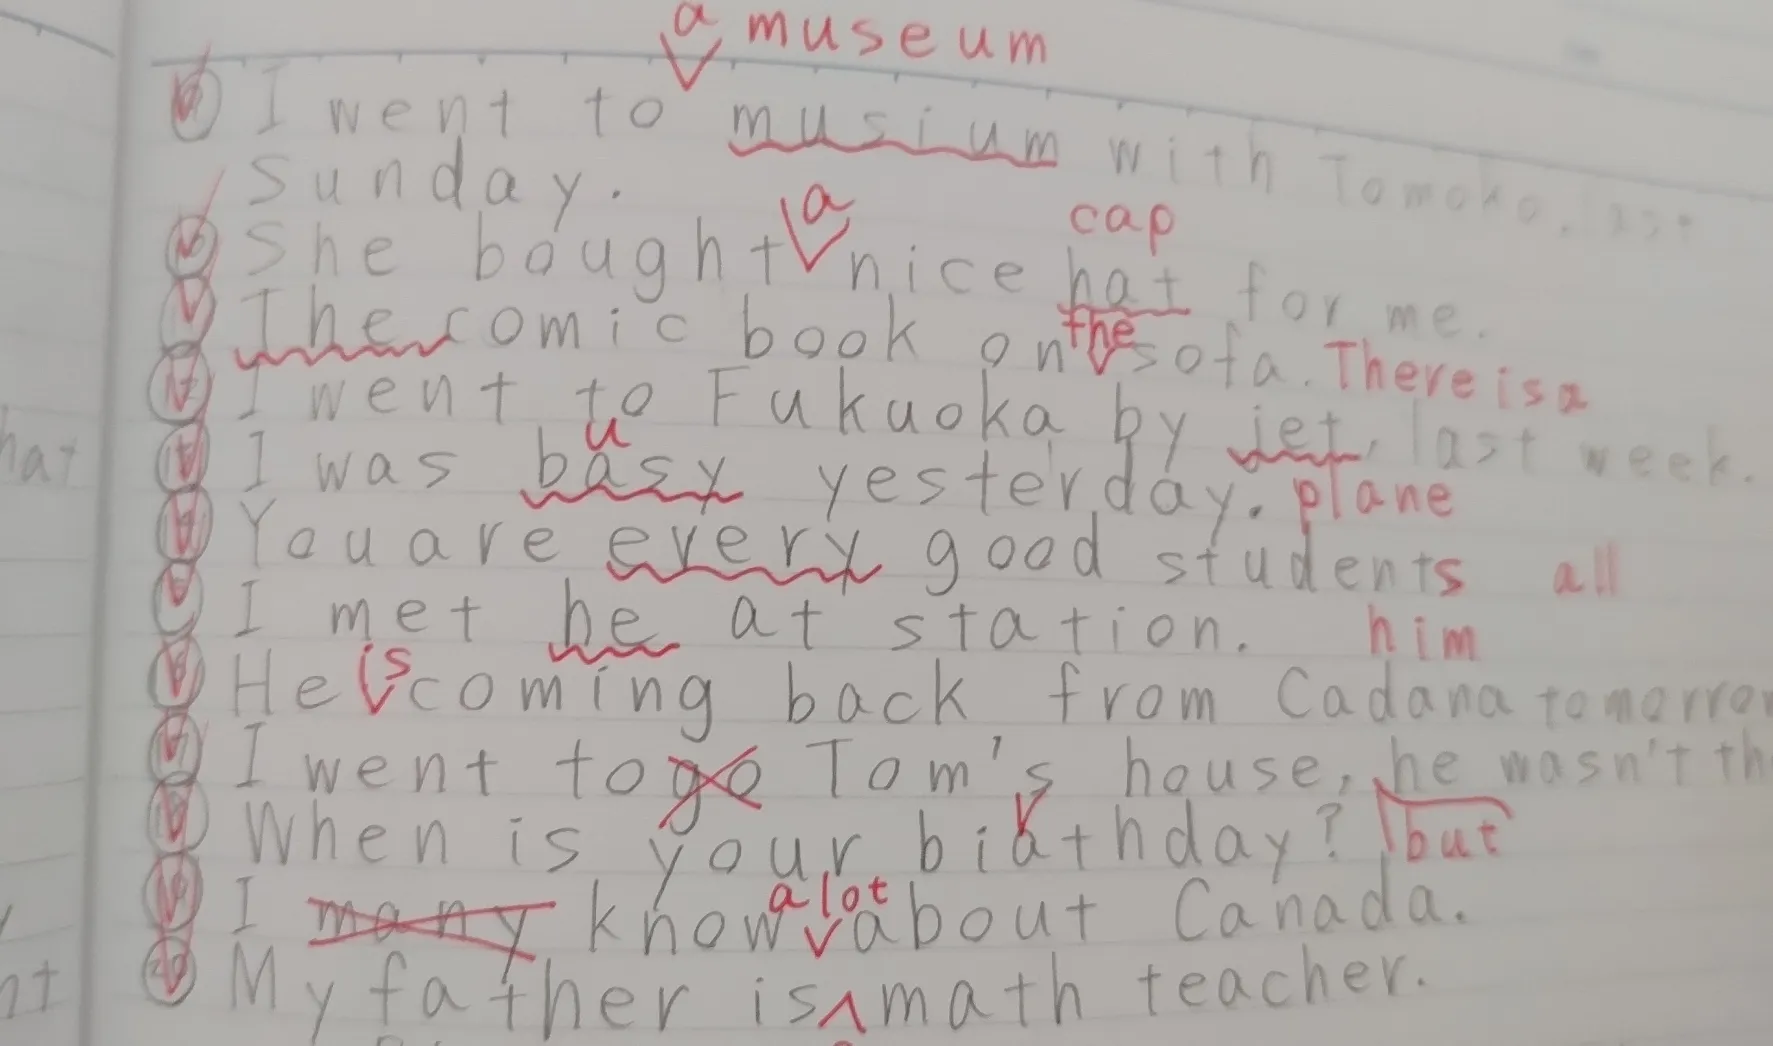 a museum
I went to musium with Tomoko, last
Sunday.
a
She bought nice hat for me.
cap
The comic book on sofa. There is a
the
I went to Fukuoka by jet, last week.
u
I was basy yesterday. plane
You are every good students all
I met he at station. him
is
He coming back from Cadana tomorrow
I went to go Tom's house, he wasn't th
When is your biathday? but
a lot
I many know about Canada.
My father is math teacher.
hat
nt